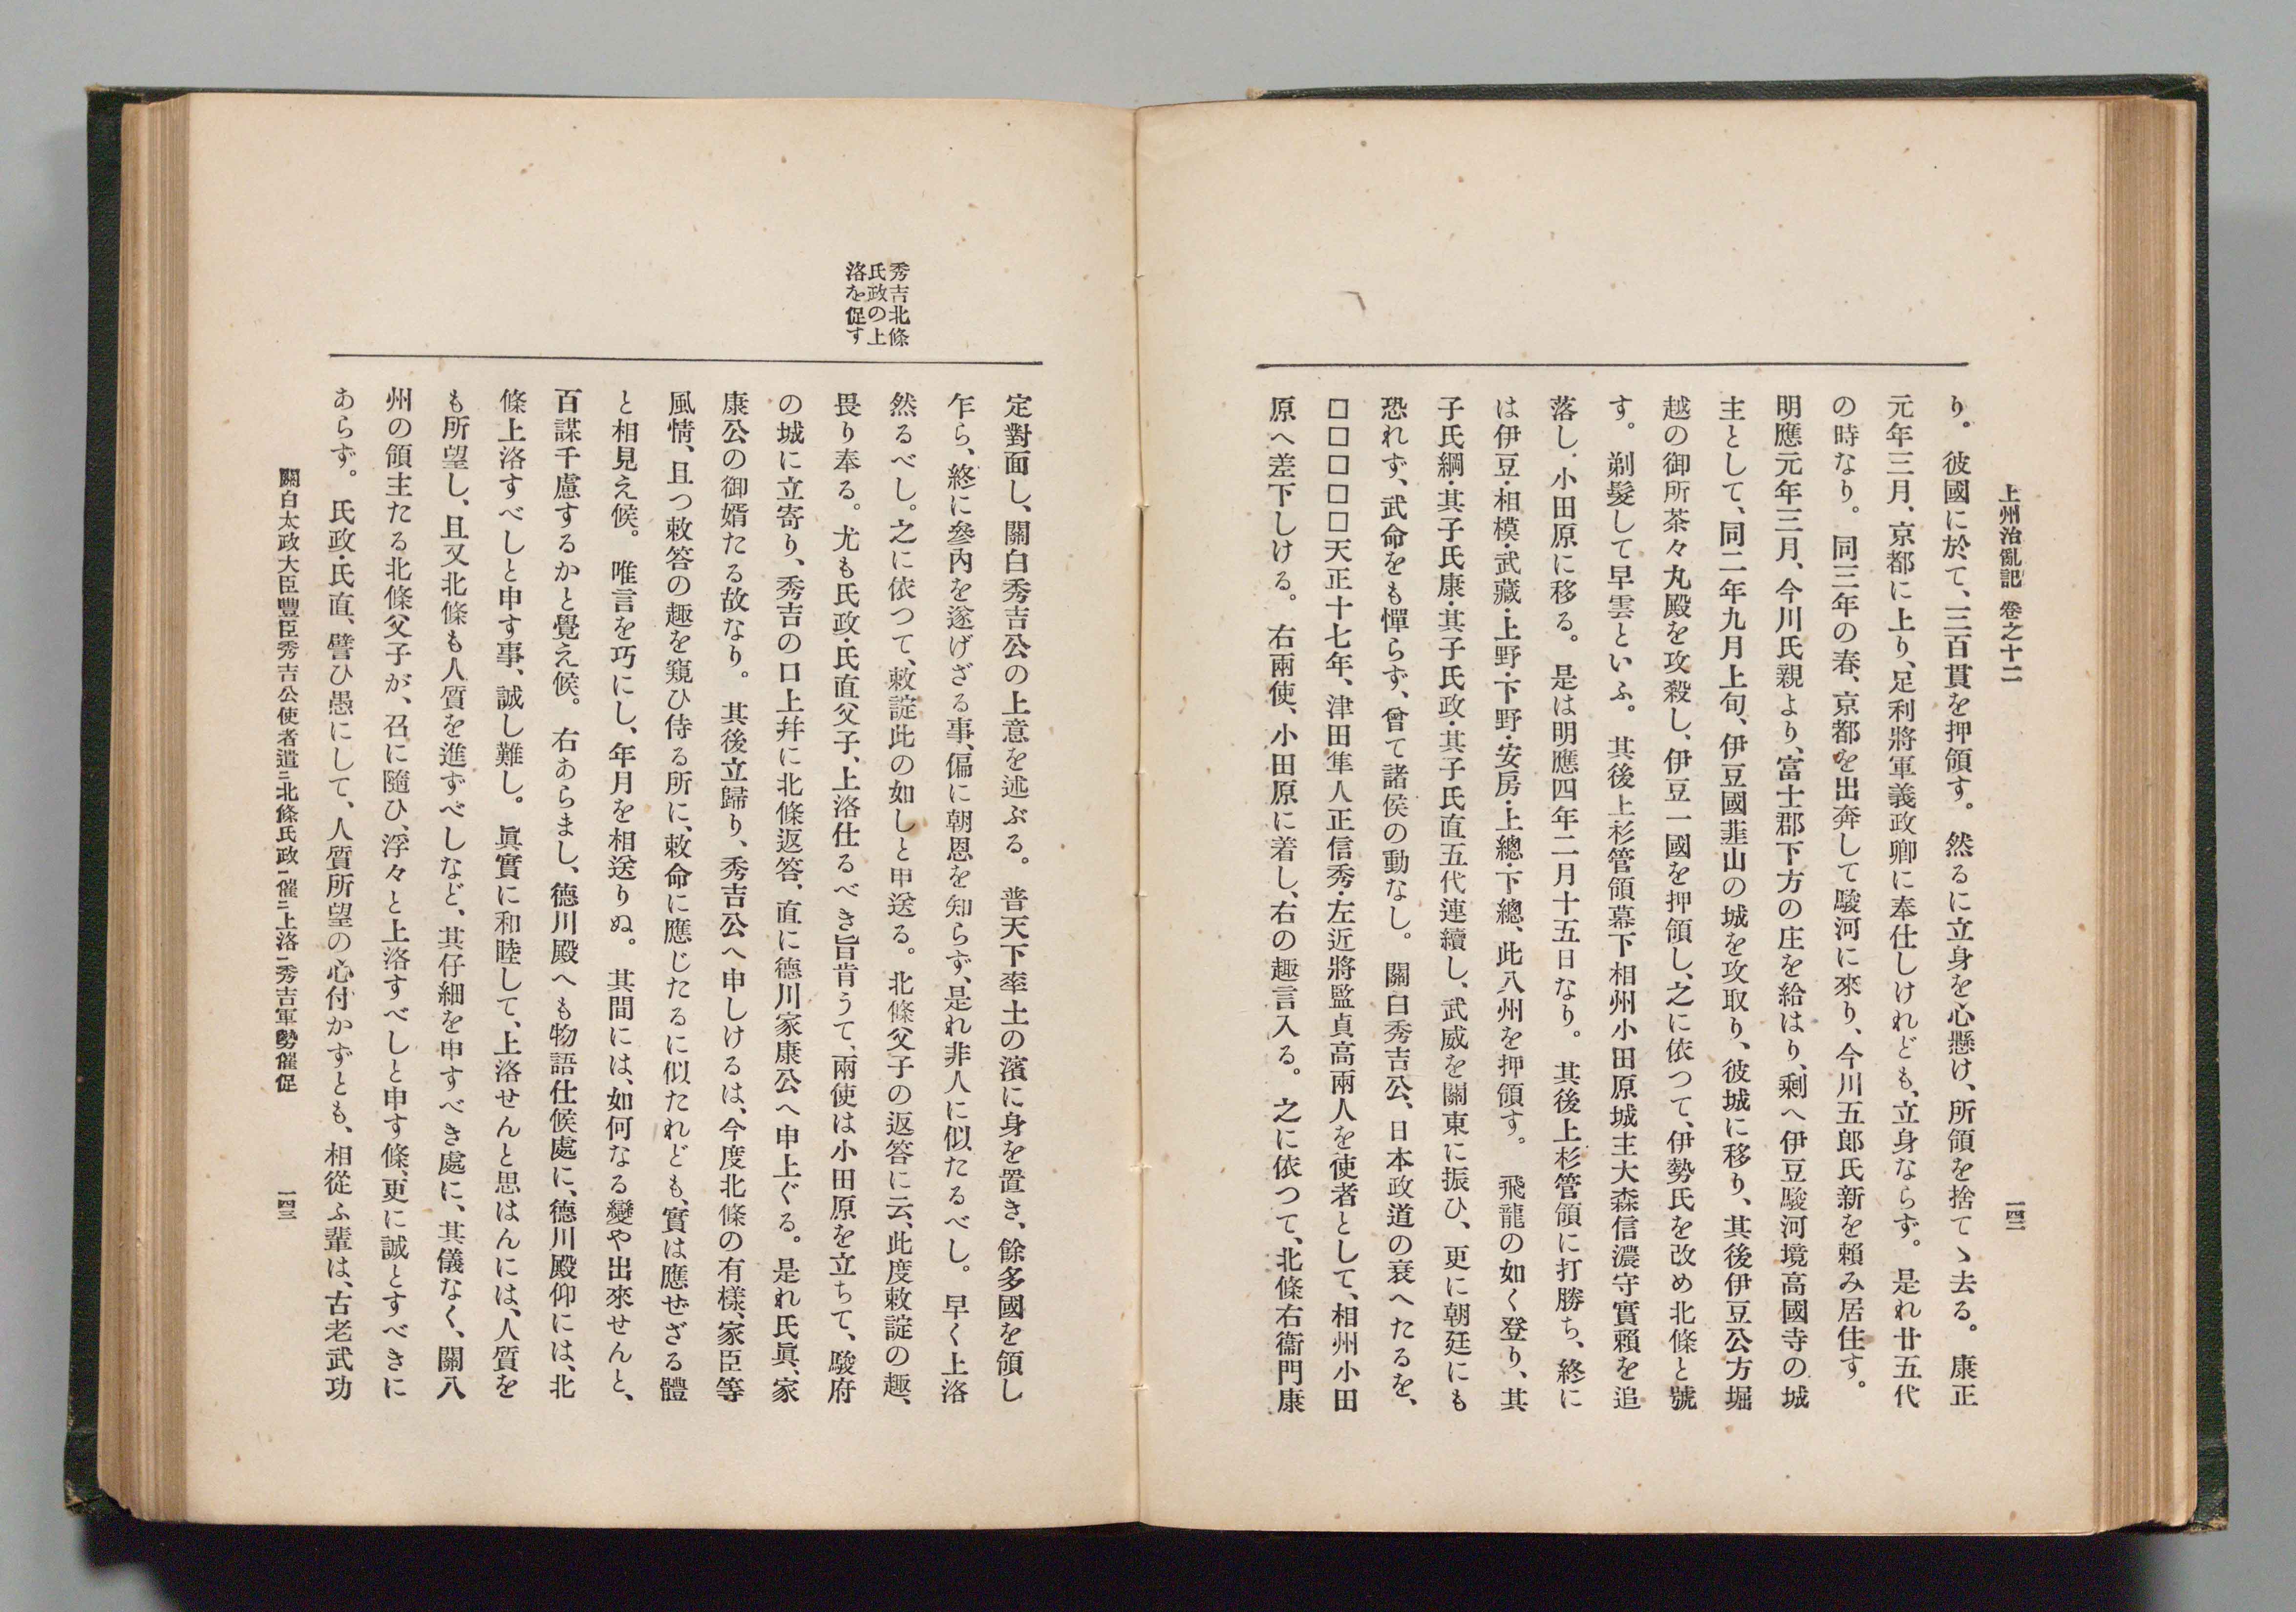 上州治亂記　卷之十二
一四二
り。彼國に於て、三百貫を押領す。然るに立身を心懸け、所領を捨てゝ去る。康正
元年三月、京都に上り、足利將軍義政卿に奉仕しけれども、立身ならず。是れ廿五代
の時なり。同三年の春、京都を出奔して駿河に來り、今川五郎氏新を賴み居住す。
明應元年三月、今川氏親より、富士郡下方の庄を給はり、剩へ伊豆駿河境高國寺の城
主として、同二年九月上旬、伊豆國韮山の城を攻取り、彼城に移り、其後伊豆公方堀
越の御所茶々丸殿を攻殺し、伊豆一國を押領し、之に依つて、伊勢氏を改め北條と號
す。剃髮して早雲といふ。其後上杉管領幕下相州小田原城主大森信濃守實賴を追
落し、小田原に移る。是は明應四年二月十五日なり。其後上杉管領に打勝ち、終に
は伊豆・相模・武藏・上野・下野・安房・上總・下總、此八州を押領す。飛龍の如く登り、其
子氏綱・其子氏康・其子氏政・其子氏直五代連續し、武威を關東に振ひ、更に朝廷にも
恐れず、武命をも憚らず、曾て諸侯の動なし。關白秀吉公、日本政道の衰へたるを、
□□□□□天正十七年、津田隼人正信秀・左近將監貞高兩人を使者として、相州小田
原へ差下しける。右兩使、小田原に着し、右の趣言入る。之に依つて、北條右衞門康
秀吉北條
氏政の上
洛を促す
定對面し、關白秀吉公の上意を述ぶる。普天下率土の濱に身を置き、餘多國を領し
乍ら、終に參內を遂げざる事、偏に朝恩を知らず、是れ非人に似たるべし。早く上洛
然るべし。之に依つて、敕諚此の如しと申送る。北條父子の返答に云、此度敕諚の趣、
畏り奉る。尤も氏政・氏直父子、上洛仕るべき旨肯うて、兩使は小田原を立ちて、駿府
の城に立寄り、秀吉の口上幷に北條返答、直に德川家康公へ申上ぐる。是れ氏眞、家
康公の御婿たる故なり。其後立歸り、秀吉公へ申しけるは、今度北條の有樣、家臣等
風情、且つ敕答の趣を窺ひ侍る所に、敕命に應じたるに似たれども、實は應ぜざる體
と相見え候。唯言を巧にし、年月を相送りぬ。其間には、如何なる變や出來せんと、
百謀千慮するかと覺え候。右あらまし、德川殿へも物語仕候處に、德川殿仰には、北
條上洛すべしと申す事、誠し難し。眞實に和睦して、上洛せんと思はんには、人質を
も所望し、且又北條も人質を進ずべしなど、其仔細を申すべき處に、其儀なく、關八
州の領主たる北條父子が、召に隨ひ、浮々と上洛すべしと申す條、更に誠とすべきに
あらず。氏政・氏直、譬ひ愚にして、人質所望の心付かずとも、相從ふ輩は、古老武功
關白太政大臣豐臣秀吉公使者遣ニ北條氏政一催ニ上洛一秀吉軍勢催促
一四三